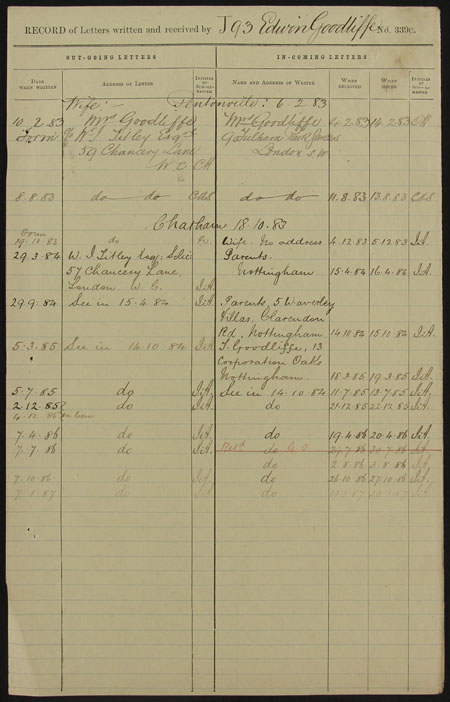 RECORD of Letters written and received by J 93 Edwin Goodliffe No. 339c.
OUT-GOING LETTERS IN-COMING LETTERS
DATE WHEN WRITTEN ADDRESS OF LETTER INITIALS OF NAME AND ADDRESS OF WRITER WHEN RECEIVED WHEN ISSUED INITIALS OF
Wife:- Pentonville: 6.2.83
10.2.83 Mrs Goodliffe Mrs Goodliffe 2.83 14.2.83
W. J. Titley Esqre 9a Fulham Park Gardens
59 Chancery Lane London S.W
W C
8.8.83 do do do do 11.8.83 13.8.83
Chatham 18.10.83
19.10.83 do Wife. No address 4.12.83 5.12.83
29.3.84 W. J Titley Esq. Solr Parents.
57 Chancery Lane, Nottingham 15.4.84 16.4.84
London W. C.
29.9.84 See in 15.4.84 Parents, 5 Waverley
Villas, Clarendon
Rd, Nottingham 14 10 84 15 10 84
5.3.85 See in 14.10.84 T. Goodliffe, 13
Corporation Oaks
Nottingham 18.3.85 19.3.85
5.7.85 do See in 14.10.84 11.7.85 13.7.85
2.12.85 do do 21.12.85 22.12.85
7.4.86 do do 19.4.86 20.4.86
7.7.86 do do
do 2.8.86 3.8.86
7.10.86 do do 26.10.86 27.10.86
7.1.87 do do 20.1.87